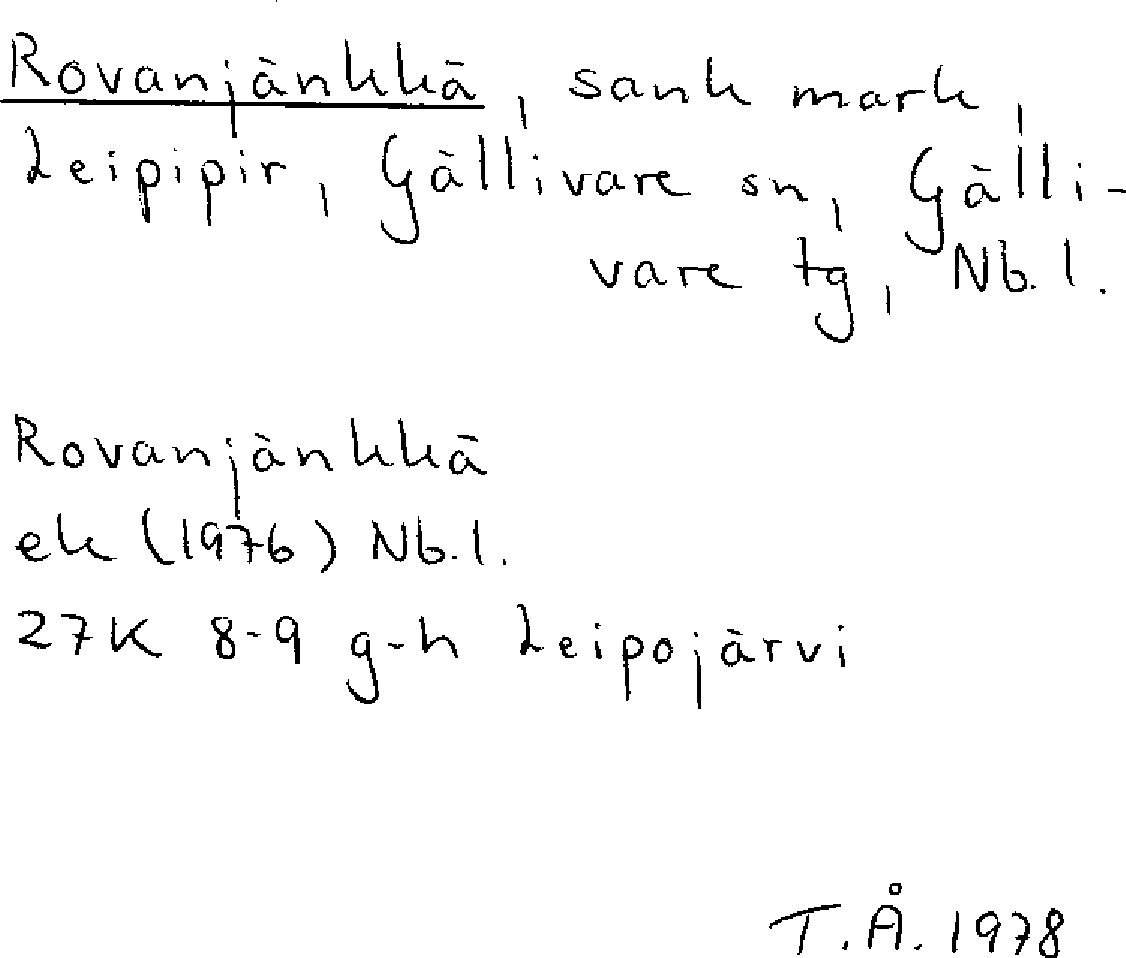 Rovanjänkkä, sank mark,
Leipipir, Gällivare sn, Gälli-
vare tg, Nb. l.
Rovanjänkkä
ek (1976) Nb. l.
27K 8-9 g-h Leipojärvi
T.Å. 1978